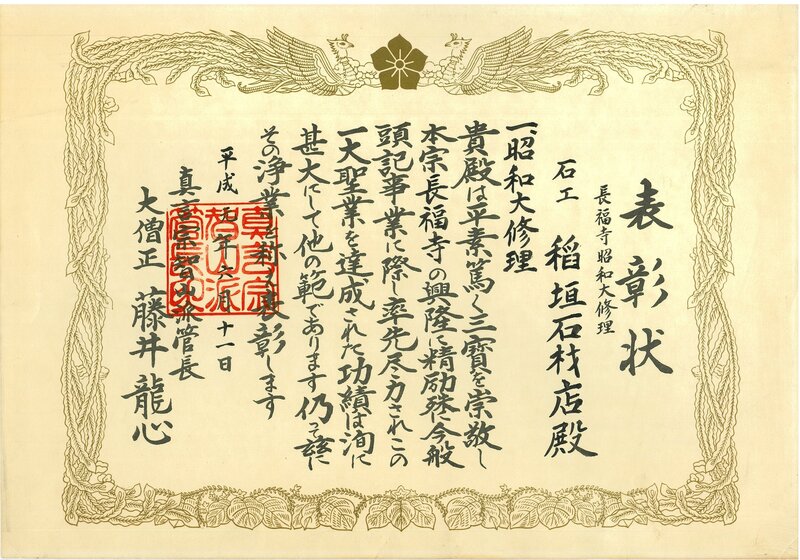 表彰状
長福寺昭和大修理
石工 稲垣石材店殿
一、昭和大修理
貴殿は平素篤く三寳を崇敬し
本宗長福寺の興隆に精励殊に今般
頭記事業に際し率先尽力されこの
一大聖業を達成された功績は洵に
甚大にして他の範であります仍って茲に
その浄業を称え表彰します
平成元年六月十一日
真言宗智山派管長
大僧正 藤井龍心
真言宗
智山派
管長之印